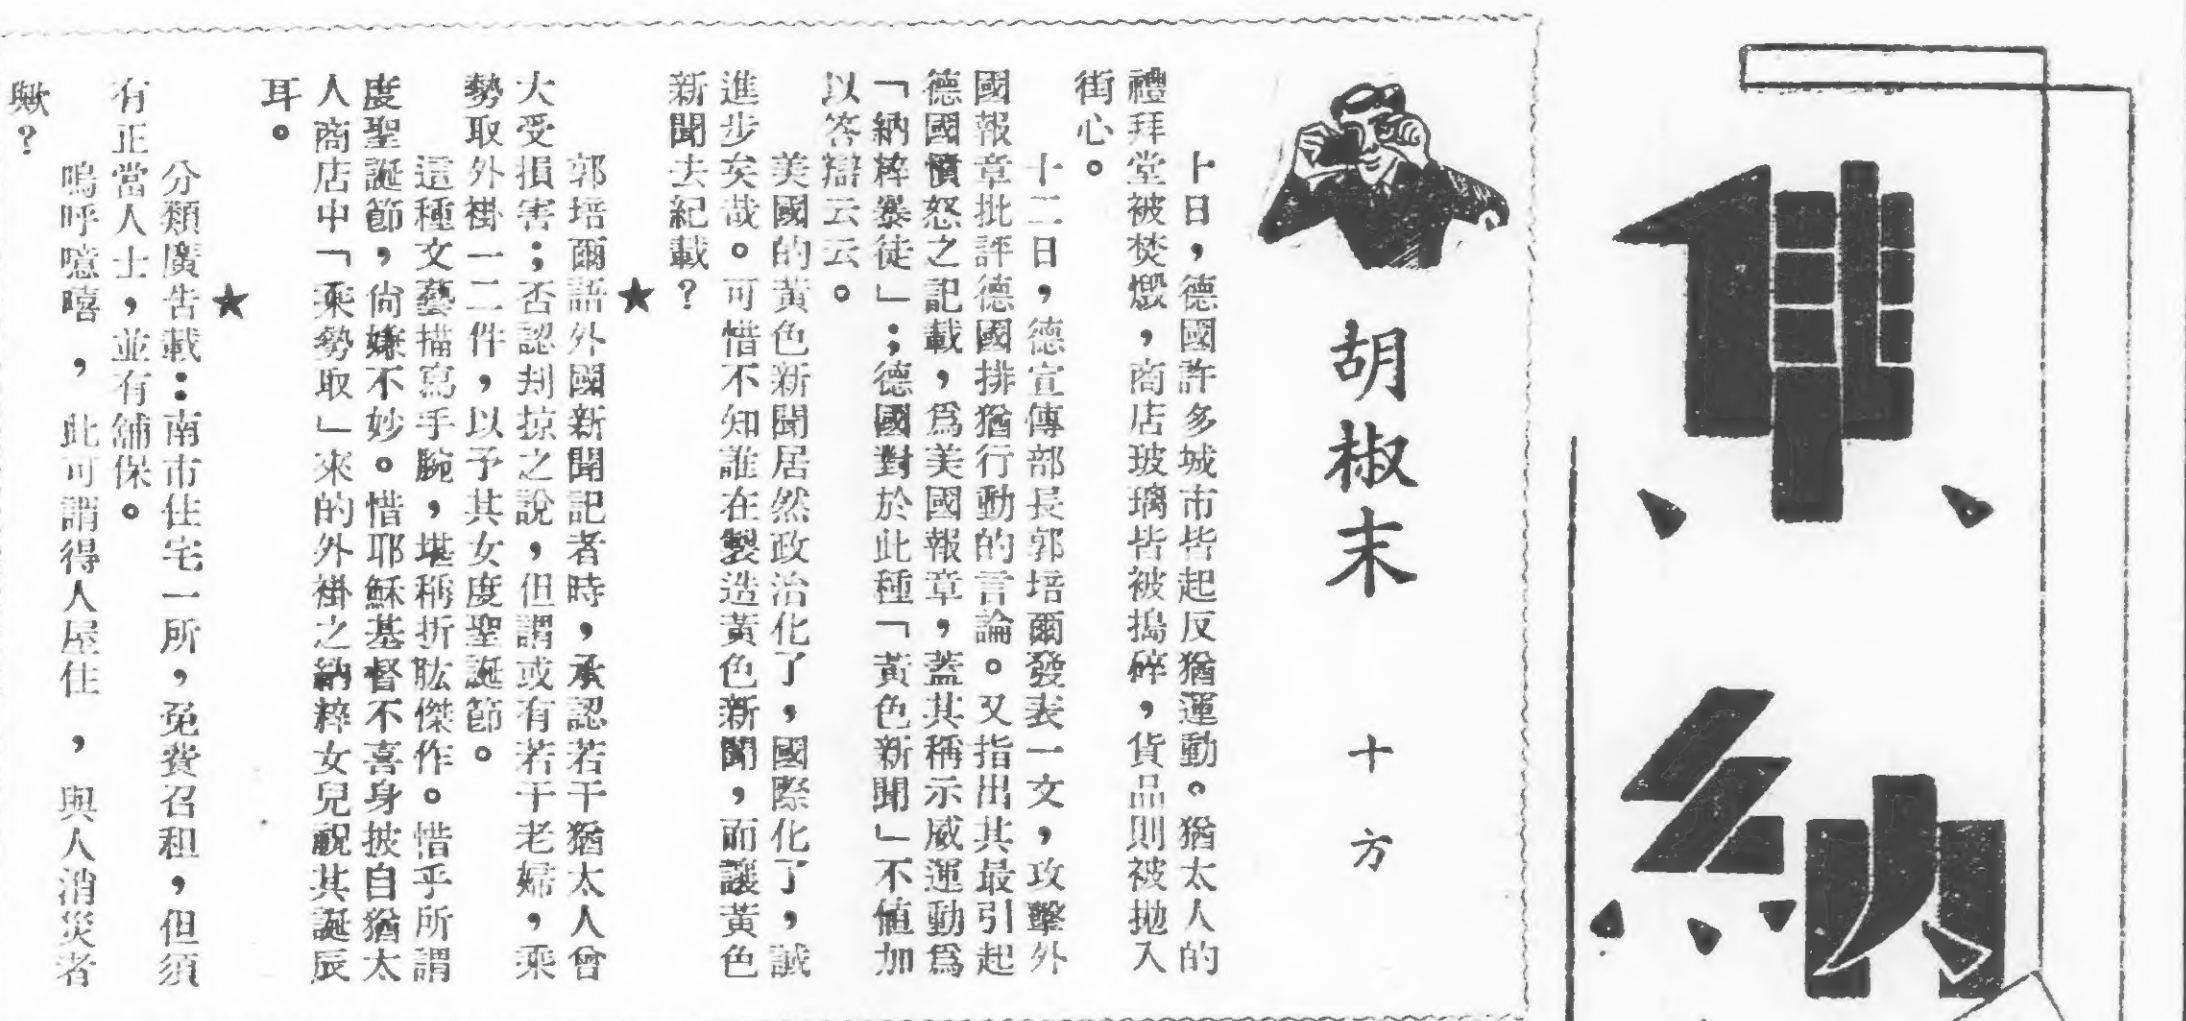 集納
胡椒末
十方
十日，德國許多城市皆起反猶運動。猶太人的
禮拜堂被焚燬，商店玻璃皆被搗碎，貨品則被拋入
街心。
十二日，德宣傳部長郭培爾發表一文，攻擊外
國報章批評德國排猶行動的言論。又指出其最引起
德國憤怒之記載，爲美國報章，蓋其稱示威運動爲
「納粹暴徒」；德國對於此種「黃色新聞」不值加
以答辯云云。
美國的黃色新聞居然政治化了，國際化了，誠
進步矣哉。可惜不知誰在製造黃色新聞，而讓黃色
新聞去紀載？
★
郭培爾語外國新聞記者時，承認若干猶太人曾
大受損害；否認刦掠之說，但謂或有若干老婦，乘
勢取外褂一二件，以予其女度聖誕節。
這種文藝描寫手腕，堪稱折肱傑作。惜乎所謂
度聖誕節，尙嫌不妙。惜耶穌基督不喜身披自猶太
人商店中「乘勢取」來的外褂之納粹女兒祝其誕辰
耳。
★
分類廣告載：南市住宅一所，免費召租，但須
有正當人士，並有舖保。
嗚呼噫嘻，此可謂得人屋住，與人消災者
歟？